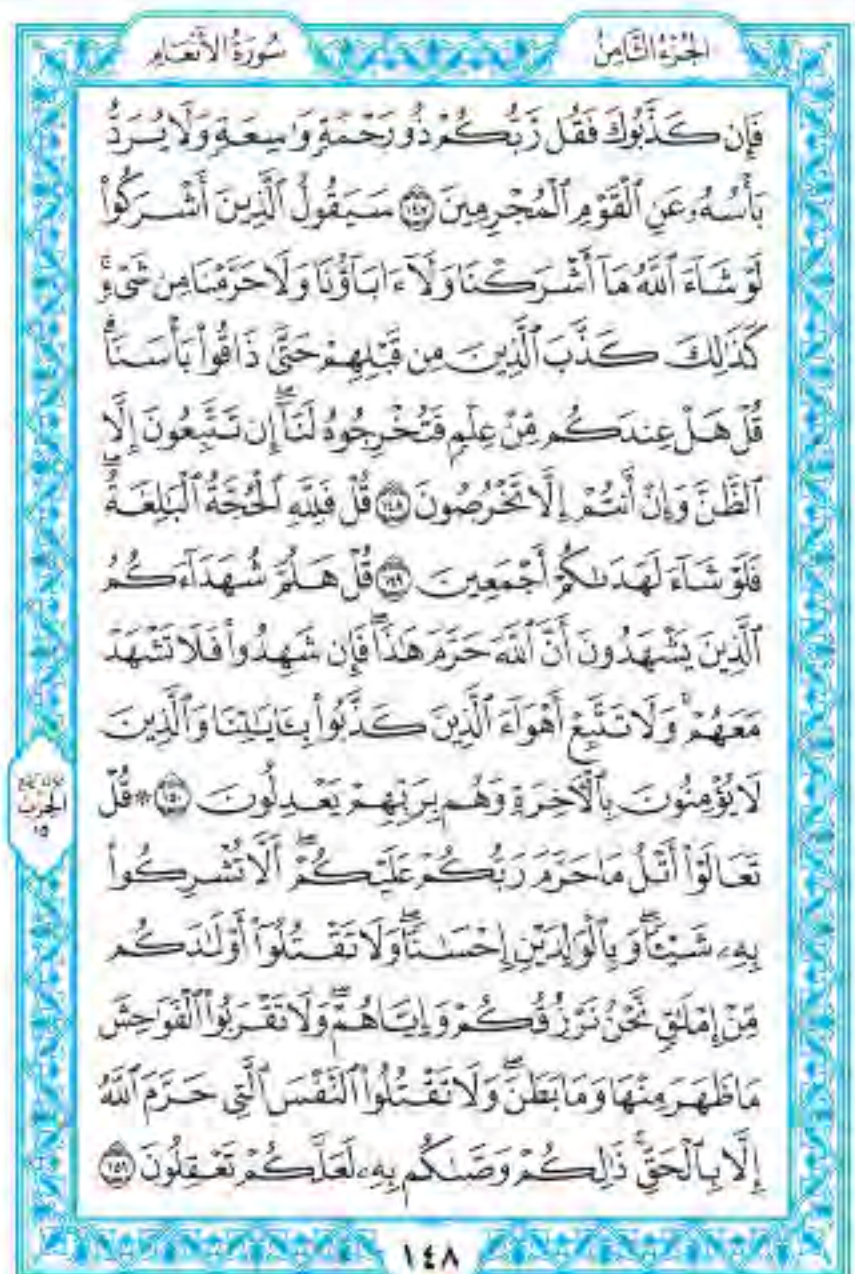 الجُزْءُ الثَّامِنُ
سُورَةُ الأَنْعَامِ
فَإِن كَذَّبُوكَ فَقُل رَّبُّكُمْ ذُو رَحْمَةٍ وَاسِعَةٍ وَلَا يُرَدُّ
بَأْسُهُۥ عَنِ ٱلْقَوْمِ ٱلْمُجْرِمِينَ ١٤٧ سَيَقُولُ ٱلَّذِينَ أَشْرَكُواْ
لَوْ شَآءَ ٱللَّهُ مَآ أَشْرَكْنَا وَلَآ ءَابَآؤُنَا وَلَا حَرَّمْنَا مِن شَىْءٍۚ
كَذَٰلِكَ كَذَّبَ ٱلَّذِينَ مِن قَبْلِهِمْ حَتَّىٰ ذَاقُواْ بَأْسَنَاۗ
قُلْ هَلْ عِندَكُم مِّنْ عِلْمٍ فَتُخْرِجُوهُ لَنَآۖ إِن تَتَّبِعُونَ إِلَّا
ٱلظَّنَّ وَإِنْ أَنتُمْ إِلَّا تَخْرُصُونَ ١٤٨ قُلْ فَلِلَّهِ ٱلْحُجَّةُ ٱلْبَٰلِغَةُۖ
فَلَوْ شَآءَ لَهَدَىٰكُمْ أَجْمَعِينَ ١٤٩ قُلْ هَلُمَّ شُهَدَآءَكُمُ
ٱلَّذِينَ يَشْهَدُونَ أَنَّ ٱللَّهَ حَرَّمَ هَٰذَاۖ فَإِن شَهِدُواْ فَلَا تَشْهَدْ
مَعَهُمْۚ وَلَا تَتَّبِعْ أَهْوَآءَ ٱلَّذِينَ كَذَّبُواْ بِـَٔايَٰتِنَا وَٱلَّذِينَ
لَا يُؤْمِنُونَ بِٱلْأَخِرَةِ وَهُم بِرَبِّهِمْ يَعْدِلُونَ ١٥٠ ۞ قُلْ
تَعَالَوْاْ أَتْلُ مَا حَرَّمَ رَبُّكُمْ عَلَيْكُمْۖ أَلَّا تُشْرِكُواْ
بِهِۦ شَيْـًٔاۖ وَبِٱلْوَٰلِدَيْنِ إِحْسَٰنًاۖ وَلَا تَقْتُلُوٓاْ أَوْلَٰدَكُم
مِّنْ إِمْلَٰقٖ نَّحْنُ نَرْزُقُكُمْ وَإِيَّاهُمْۖ وَلَا تَقْرَبُواْ ٱلْفَوَٰحِشَ
مَا ظَهَرَ مِنْهَا وَمَا بَطَنَۖ وَلَا تَقْتُلُواْ ٱلنَّفْسَ ٱلَّتِى حَرَّمَ ٱللَّهُ
إِلَّا بِٱلْحَقِّۚ ذَٰلِكُمْ وَصَّىٰكُم بِهِۦ لَعَلَّكُمْ تَعْقِلُونَ ١٥١
الحِزْبُ
١٥
١٤٨